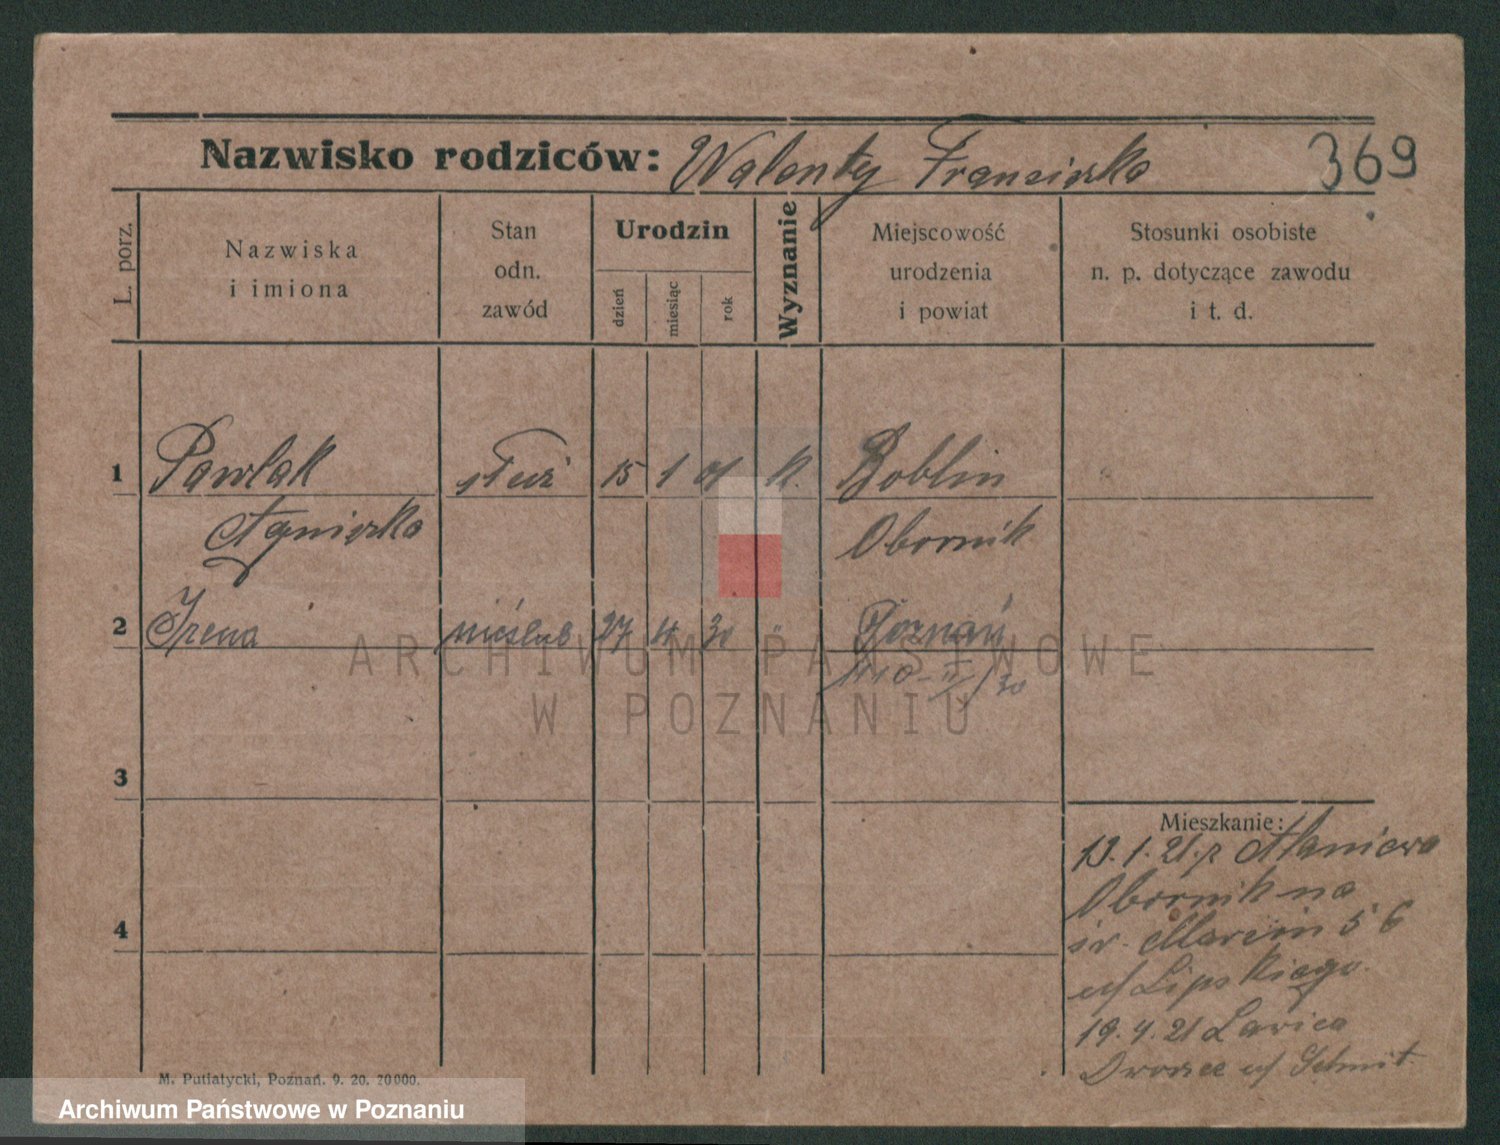 Nazwisko rodziców: Walenty Franciszka 369
L. porz.
Nazwiska
i imiona
Stan
odn.
zawód
Urodzin
dzień
miesiąc
rok
Wyznanie
Miejscowość
urodzenia
i powiat
Stosunki osobiste
n. p. dotyczące zawodu
i t. d.
1 Pawlak służ 15 1 01 k. Boblin
Agnieszka Obornik
2 Irena nieślub 27 4 30 " Poznań
3
Mieszkanie:
13.1.21. z
Obornik na
św. Marcin 56
Lipskiego
4
19.4.21 Ławica
M. Putiatycki, Poznań. 9. 20. 70000.
ARCHIWUM PAŃSTWOWE
W POZNANIU
Archiwum Państwowe w Poznaniu